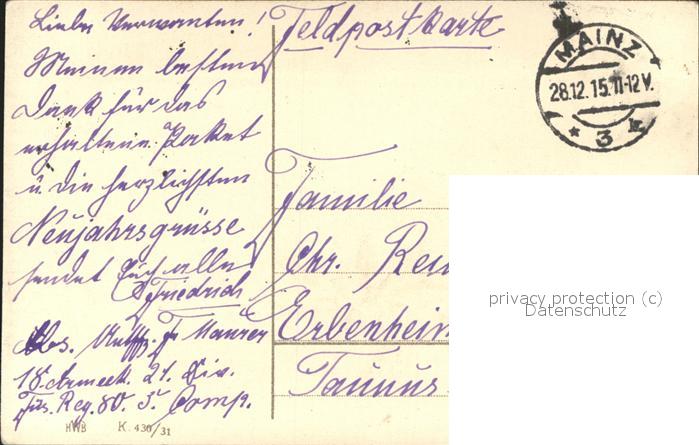 Liebe Verwanten!
Meinen besten
Dank für das
erhaltene Paket
u. die herzlichsten
Neujahrsgrüsse
sendet Euch allen
Friedrich
Abs. Untffz. Fr Maurer
18. Armeek. 21. Div.
Füs. Reg. 80. 5. Comp.
HWB K. 430/31
Feldpostkarte
MAINZ
28.12.15.11-12V.
* 3 *
Familie
Chr. Rei
Erbenheim
Taunus
privacy protection (c)
Datenschutz